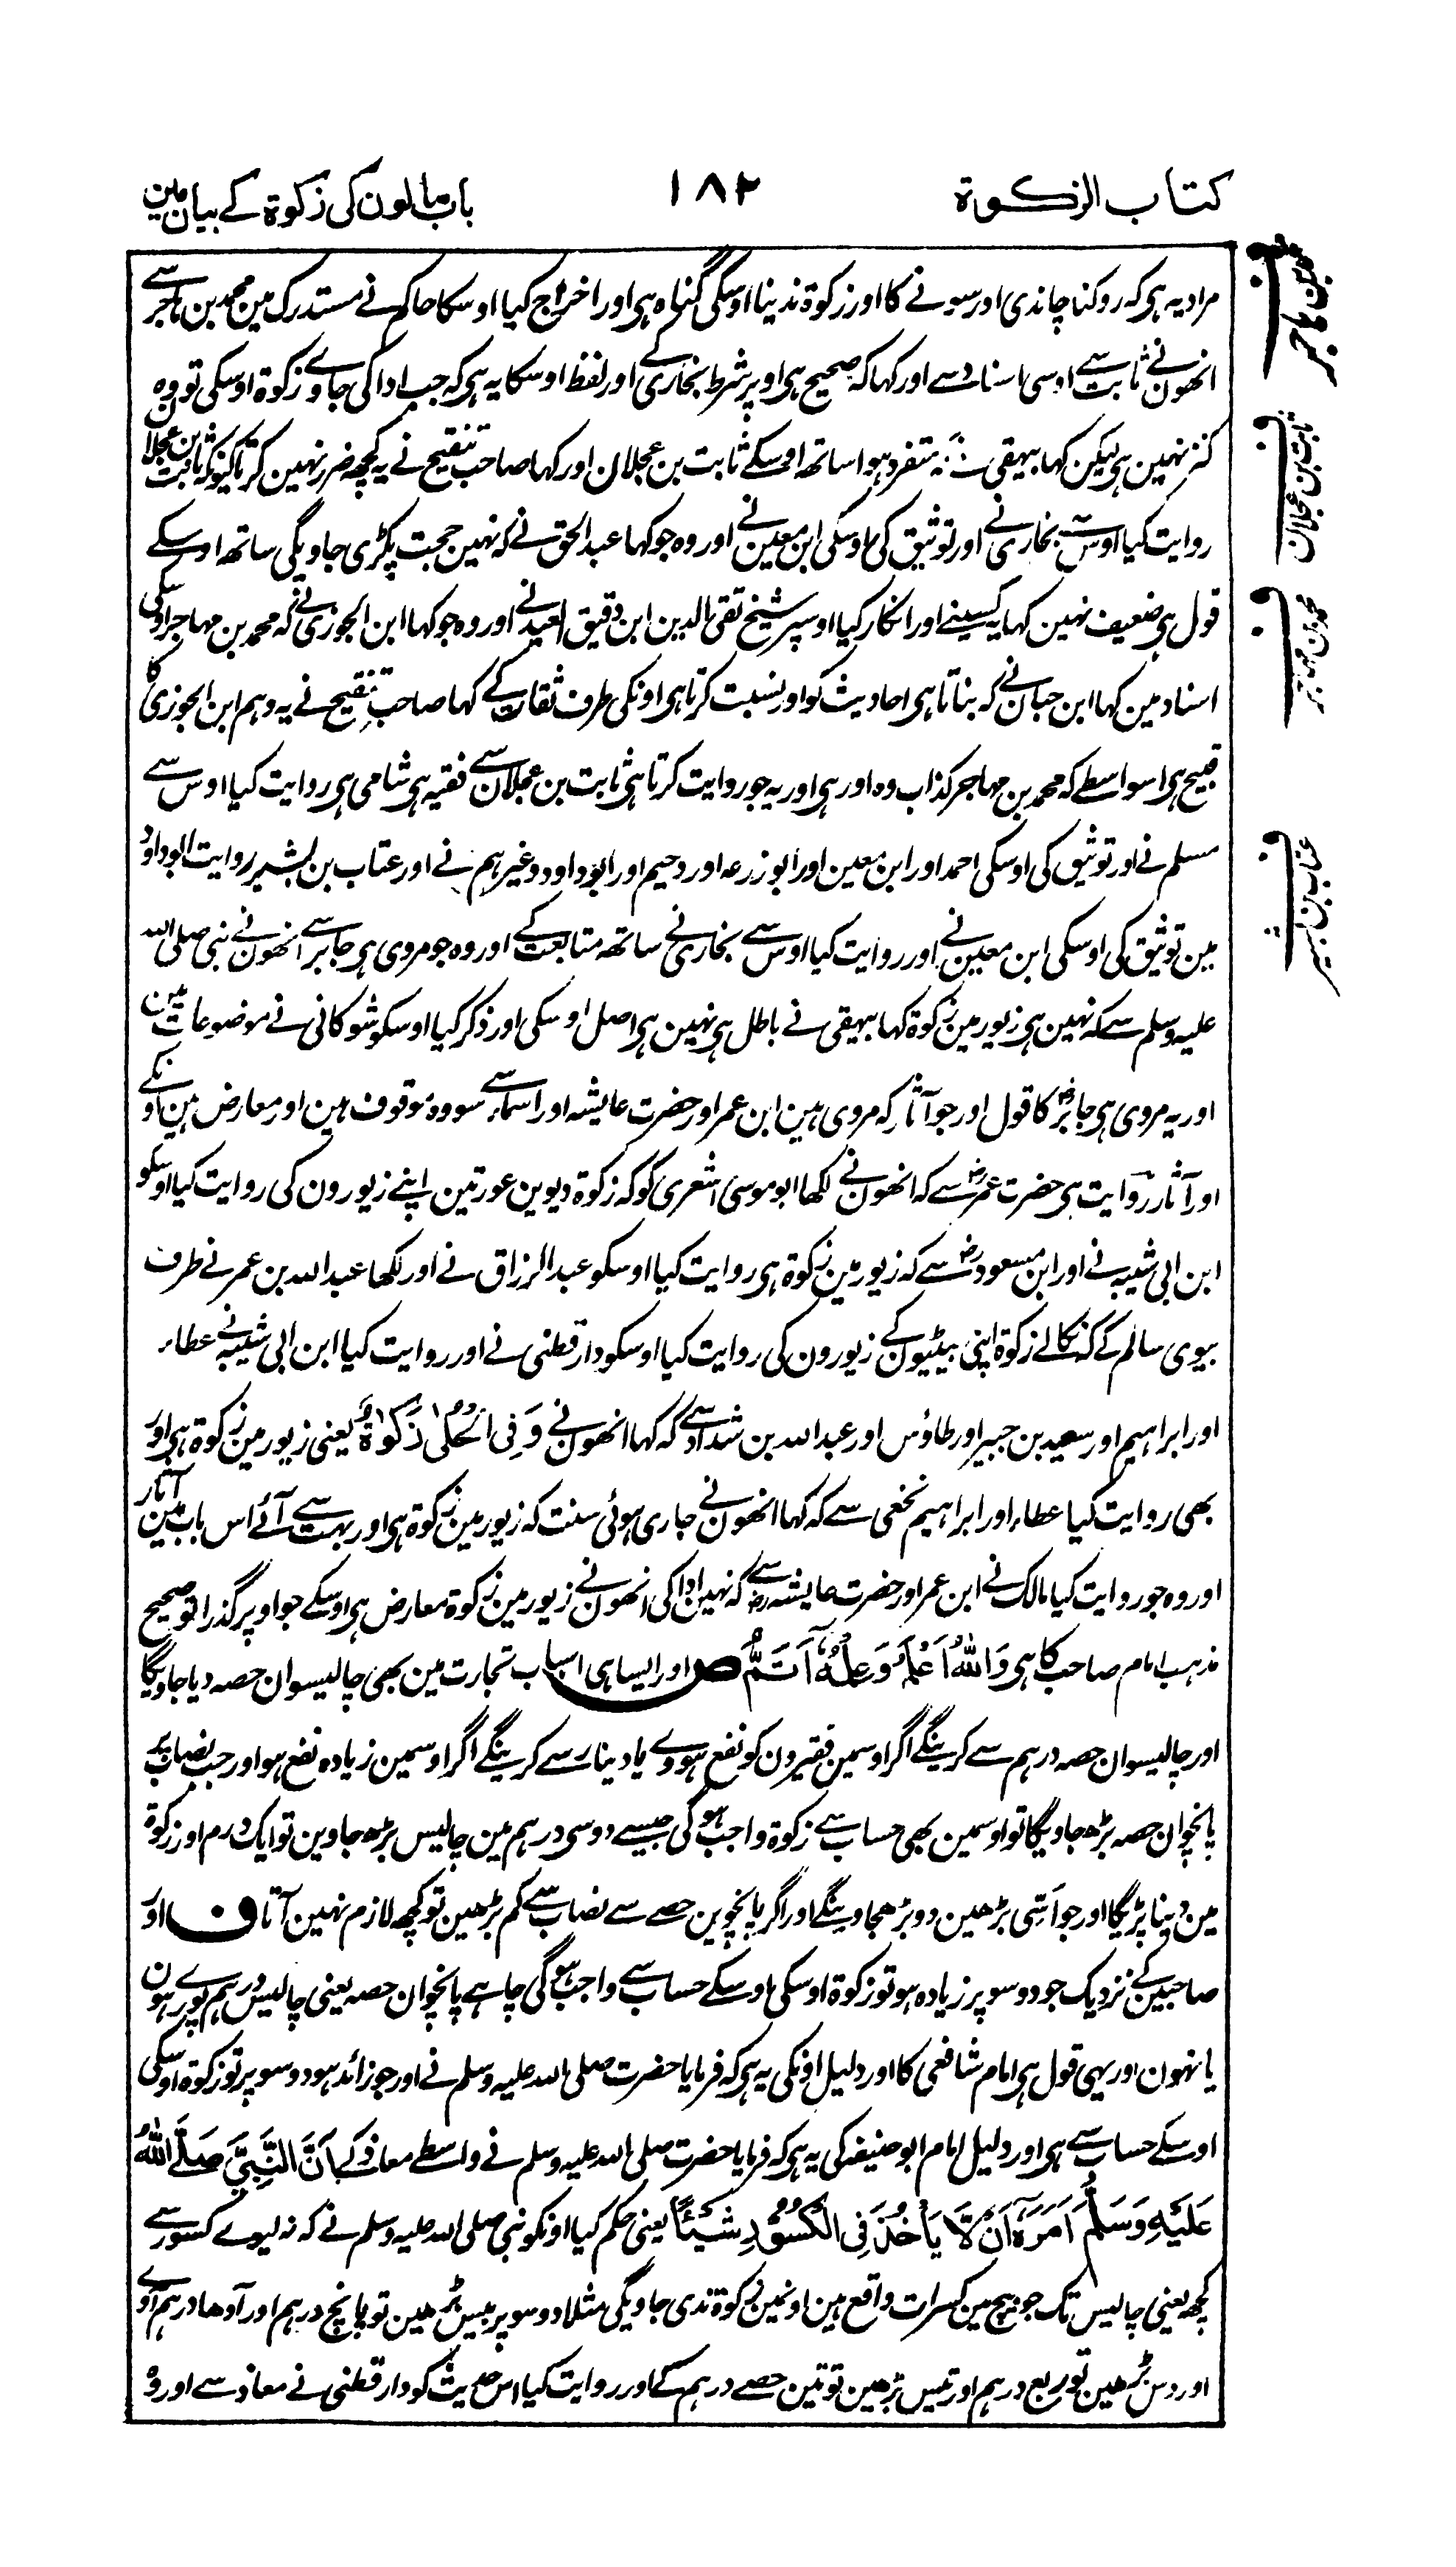 کتاب الزکوة
۱۸۲
باب مالون کی زکوة کے بیان مین
مراد یہ ہی کہ روکنا چاندی اور سونے کا اور زکوة ندینا اوسکی گناہ ہی اور اخراج کیا اوسکا حاکم نے مستدرک مین محمد بن مہاجر سے
انھون نے ثابت سے اوسی اسناد سے اور کہا کہ صحیح ہی اوپر شرط بخاری کے اور لفظ اوسکا یہ ہی کہ جب ادا کی جاوے زکوة اوسکی تو وہ
کنز نہین ہی لیکن کہا بیہقی نے کہ متفرد ہوا ساتھ اوسکے ثابت بن عجلان اور کہا صاحب تنقیح نے یہ کچھ ضرر نہین کرتا کیونکہ ثابت بن عجلان
روایت کیا اوس سے بخاری نے اور توثیق کی اوسکی ابن معین نے اور وہ جو کہا عبد الحق نے کہ نہین حجت پکڑی جاویگی ساتھ اوسکے
قول ہی ضعیف نہین کہا یہ کسینے اور انکار کیا اوسپر شیخ تقی الدین ابن دقیق العید نے اور وہ جو کہا ابن الجوزی نے کہ محمد بن مہاجر اوسکی
اسناد مین کہا ابن حبان نے کہ بناتا ہی احادیث کو اور نسبت کرتا ہی اونکی طرف ثقات کے کہا صاحب تنقیح نے یہ وہم ابن الجوزی کا
قبیح ہی اسواسطے کہ محمد بن مہاجر کذاب وہ اور ہی اور یہ جو روایت کرتا ہی ثابت بن عجلان سے فقیہ ہی شامی ہی روایت کیا اوس سے
مسلم نے اور توثیق کی اوسکی احمد اور ابن معین اور ابو زرعہ اور دحیم اور ابو داود وغیرہم نے اور عتاب بن بشیر روایت ابو داود
مین توثیق کی اوسکی ابن معین نے اور روایت کیا اوس سے بخاری نے ساتھ متابعت کے اور وہ جو مروی ہی جابر سے انھون نے نبی صلی اللہ
علیہ وسلم سے کہ نہین ہی زیور مین زکوة کہا بیہقی نے باطل ہی نہین ہی اصل اوسکی اور ذکر کیا اوسکو شوکانی نے موضوعات مین
اور یہ مروی ہی جابرؓ کا قول اور جو آثار کہ مروی ہین ابن عمر اور حضرت عایشہ اور اسماء سے سو وہ موقوف ہین اور معارض ہین اونکے
اور آثار روایت ہی حضرت عمرؓ سے کہ انھون نے لکھا ابو موسی اشعری کو کہ زکوة دیوین عورتین اپنے زیورون کی روایت کیا اوسکو
ابن ابی شیبہ نے اور ابن مسعودؓ سے کہ زیور مین زکوة ہی روایت کیا اوسکو عبد الرزاق نے اور لکھا عبد اللہ بن عمر نے طرف
بیوی سالم کے کہ نکالے زکوة اپنی بیٹیون کے زیورون کی روایت کیا اوسکو دارقطنی نے اور روایت کیا ابن ابی شیبہ نے عطاء
اور ابراہیم اور سعید بن جبیر اور طاؤس اور عبد اللہ بن شداد سے کہ کہا انھون نے وَفِی الْحُلِیِّ زَکٰوةٌ یعنی زیور مین زکوة ہی اور
بھی روایت کیا عطاء اور ابراہیم نخعی سے کہ کہا انھون نے جاری ہوئی سنت کہ زیور مین زکوة ہی اور بہت سے آئے اس باب مین آثار
اور وہ جو روایت کیا مالک نے ابن عمر اور حضرت عایشہؓ سے کہ نہین ادا کی انھون نے زیور مین زکوة معارض ہی اوسکے جو اوپر گذرا تو صحیح
مذہب امام صاحب کا ہی وَاللّٰہُ اَعْلَمُ وَعِلْمُہٗٓ اَتَمُّ ص اور ایسا ہی اسباب تجارت مین بھی چالیسوان حصہ دیا جاویگا
اور چالیسوان حصہ درہم سے کرینگے اگر اوسمین فقیرون کو نفع ہووے یا دینار سے کرینگے اگر اوسمین زیادہ نفع ہو اور جب نصاب پر
پانچوان حصہ بڑھ جاویگا تو اوسمین بھی حساب سے زکوة واجب ہوگی جیسے دوسی درہم مین چالیس بڑھ جاوین تو ایک درم اور زکوة
مین دینا پڑیگا اور جو اَسّی بڑھین دو بڑھجاوینگے اور اگر پانچوین حصے سے نصاب سے کم بڑھین تو کچھ لازم نہین آتا ف اور
صاحبین کے نزدیک جو دو سو پر زیادہ ہو تو زکوة اوسکی اوسکے حساب سے واجب ہوگی چاہے پانچوان حصہ یعنی چالیس درہم پورے ہون
یا نہون اور یہی قول ہی امام شافعی کا اور دلیل اونکی یہ ہی کہ فرمایا حضرت صلی اللہ علیہ وسلم نے اور جو زائد ہو دو سو پر تو زکوة اوسکی
اوسکے حساب سے ہی اور دلیل امام ابو حنیفہ کی یہ ہی کہ فرمایا حضرت صلی اللہ علیہ وسلم نے واسطے معاذ کے اَنَّ النَّبِیَّ صَلَّی اللّٰہُ
عَلَیْہِ وَسَلَّمَ اَمَرَہٗٓ اَنْ لَّا یَاْخُذَ فِی الْکُسُوْرِ شَیْئًا یعنی حکم کیا اونکو نبی صلی اللہ علیہ وسلم نے کہ نہ لیوے کسور سے
کچھ یعنی چالیس تک جو بیچ مین کسرات واقع ہین اونمین زکوة ندی جاویگی مثلا دو سو پر بیس بڑھین تو پانچ درہم اور آدھا درہم آوے
اور دس بڑھین تو ربع درہم اور تیس بڑھین تو تین حصے درہم کے اور روایت کیا اس حدیث کو دارقطنی نے معاذ سے اور وہ
ف محمد بن مہاجر
ف ثابت بن عجلان
ف محمد بن مہاجر
ف عتاب بن بشیر